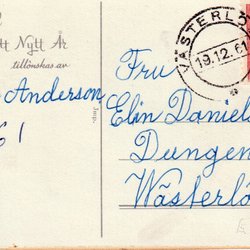 tt Nytt År
tillönskas av
Anderson
61
Imp.
VÄSTERLÖ
19.12.61
Fru
Elin Daniels
Dungen
Wästerlö